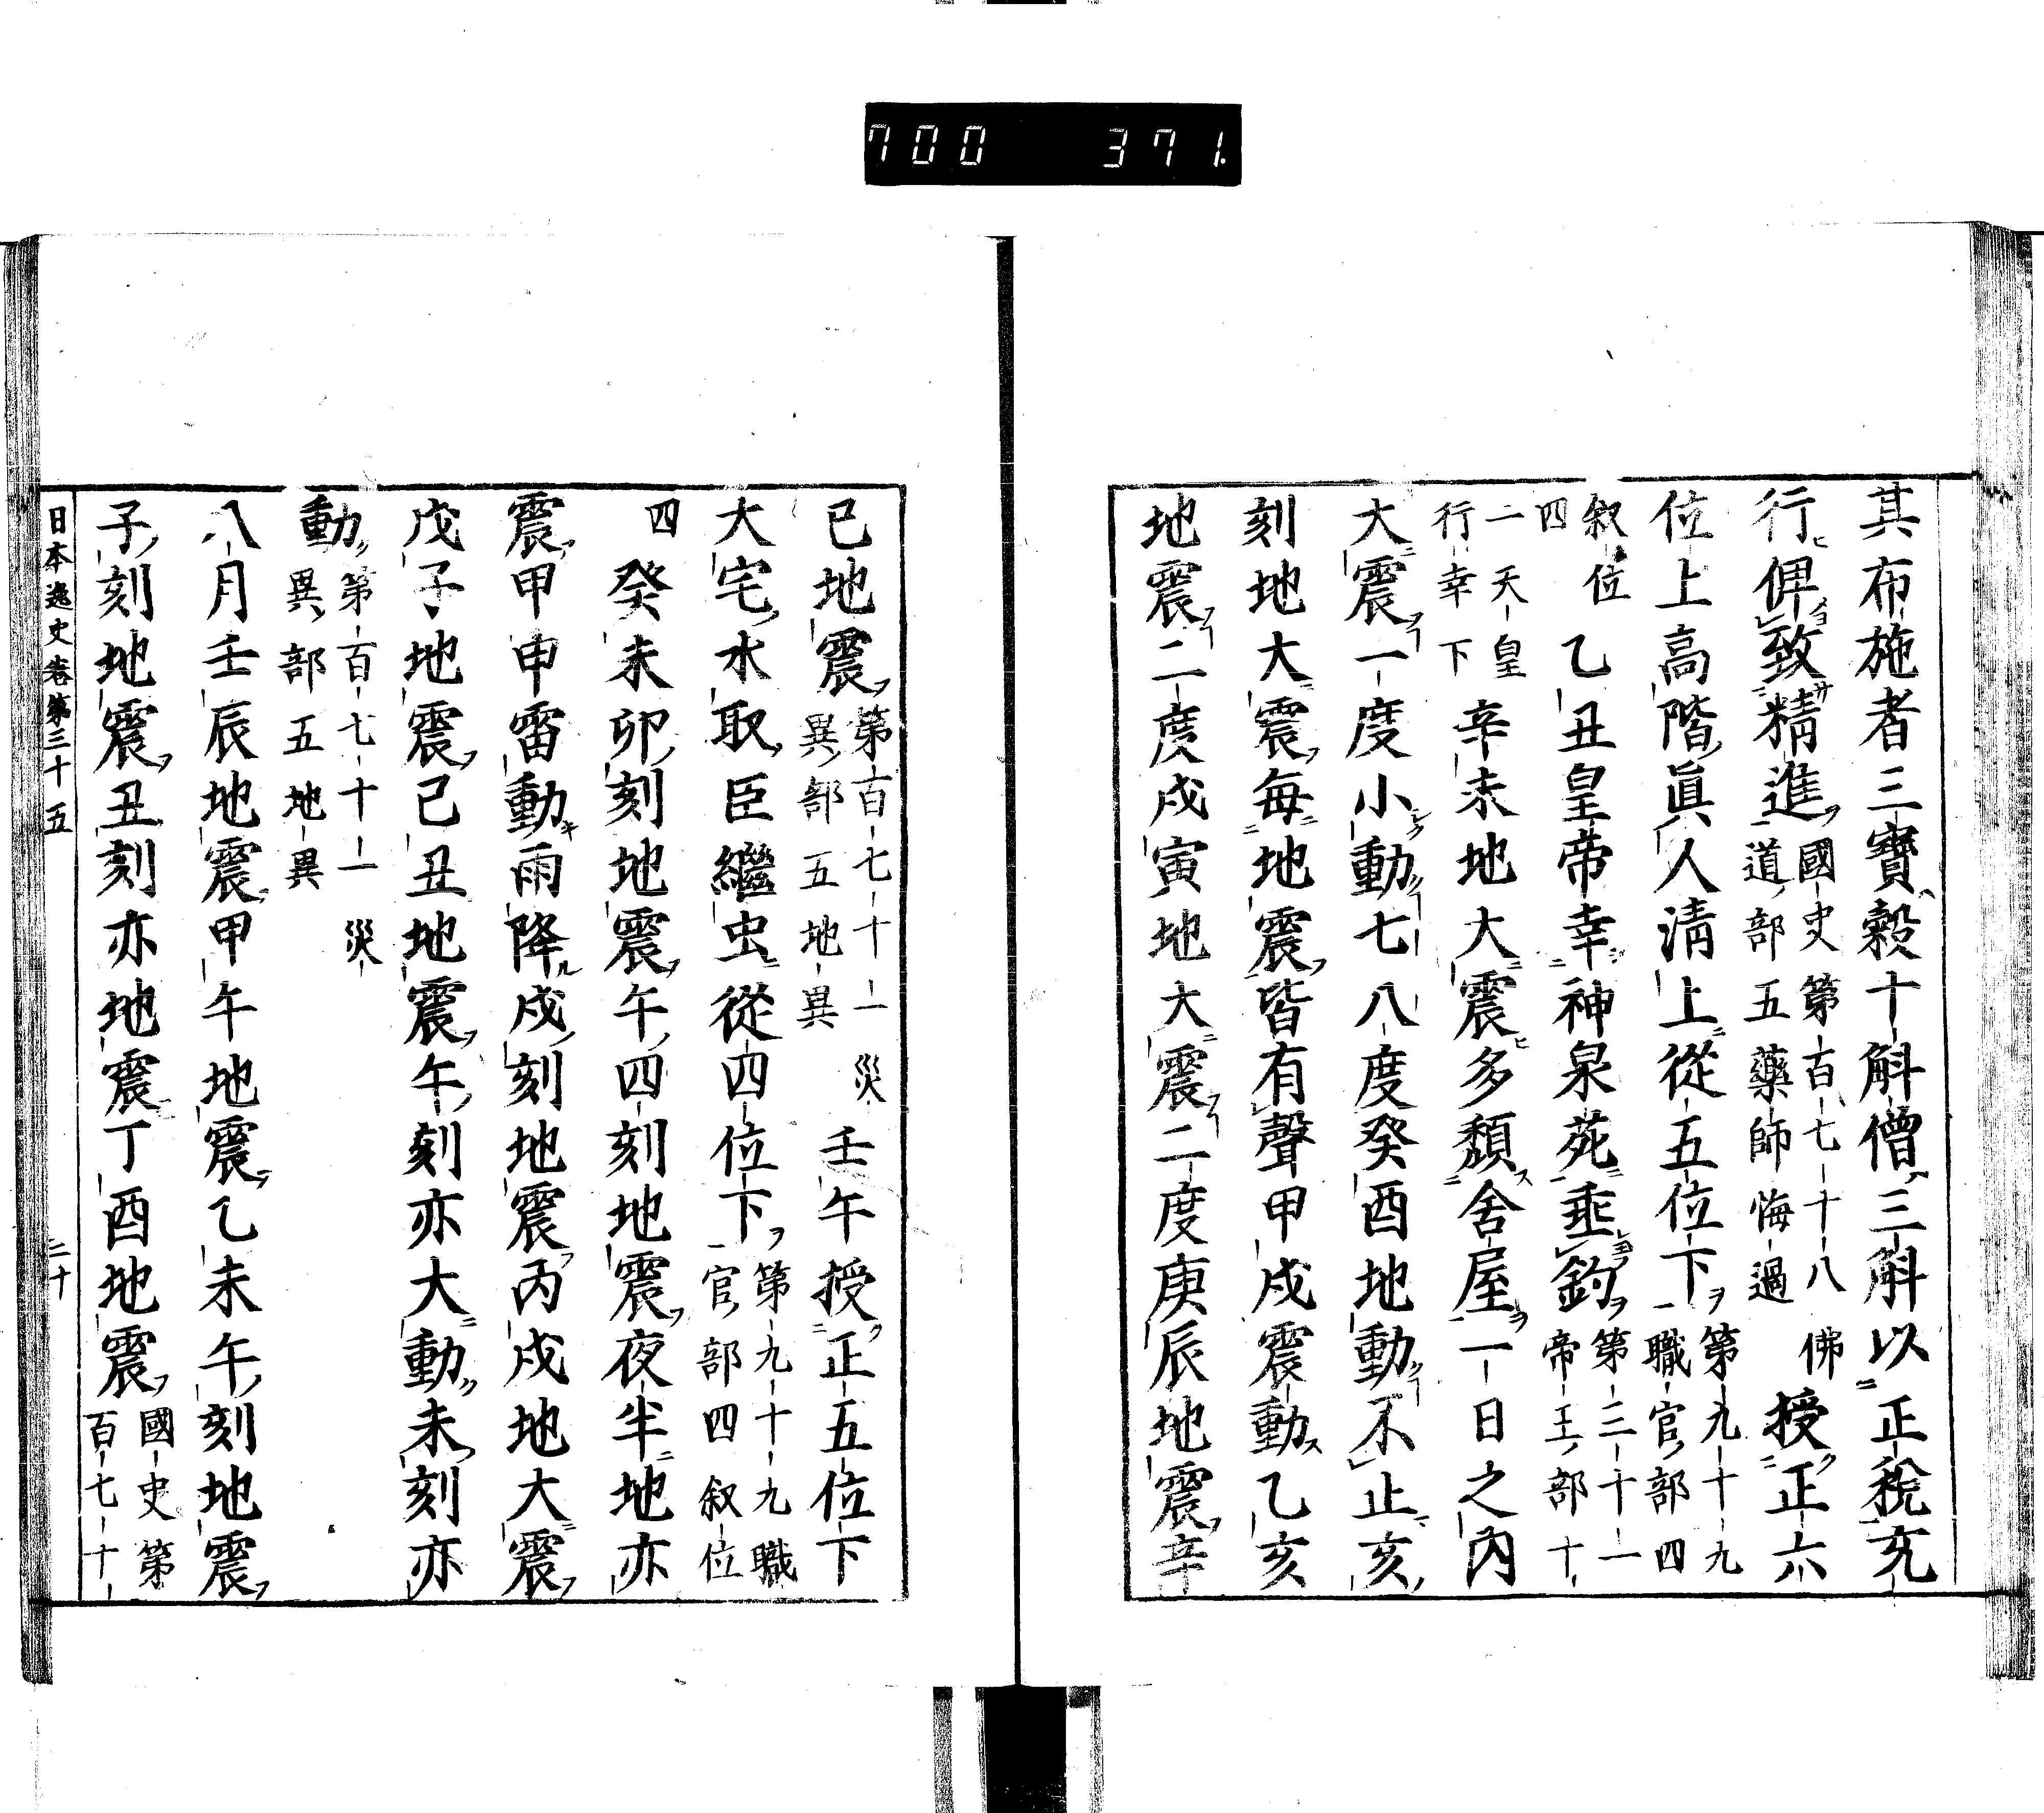 700 371.
其布施者三寶穀十斛僧三斛以正稅充
行俾致精進國史第百七十八佛道部五藥師悔過授正六
位上高階眞人清上從五位下第九十九職官部四
叙位四乙丑皇帝幸神泉苑垂釣第三十一帝王部十
一天皇行幸下辛未地大震多頽舍屋一日之內
大震一度小動七八度癸酉地動不止亥
刻地大震每地震皆有聲甲戌震動乙亥
地震二度戌寅地大震二度庚辰地震辛
已地震第百七十一災異部五地異壬午授正五位下
大宅水取臣繼虫從四位下第九十九職官部四叙位
四癸未卯刻地震午四刻地震夜半地亦
震甲申雷動雨降戌刻地震丙戌地大震
戊子地震己丑地震午刻亦大動未刻亦
動第百七十一災異部五地異
八月壬辰地震甲午地震乙未午刻地震
子刻地震丑刻亦地震丁酉地震國史第百七十
日本逸史卷第三十五 二十